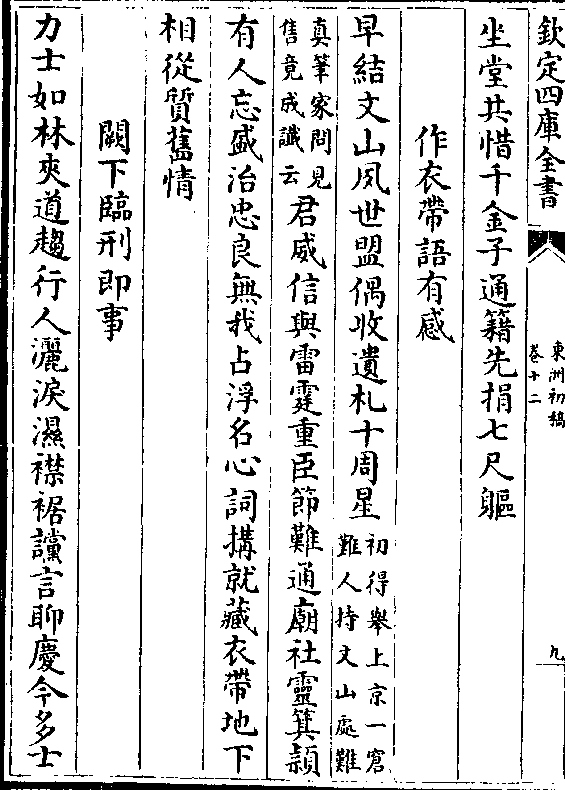 欽定四庫全書
東洲初稿
卷十二
九
坐堂共惜千金子通籍先捐七尺軀
作衣帶語有感
早結文山夙世盟偶收遺札十周星
初得舉上京一窘
難人持文山處難
真筆家問見
售竟成讖云
君威信與雷霆重臣節難通廟社靈箕潁
有人忘盛治忠良無我占浮名心詞搆就藏衣帶地下
相從質舊情
闕下臨刑即事
力士如林夾道趨行人灑淚濕襟裾讜言聊慶今多士